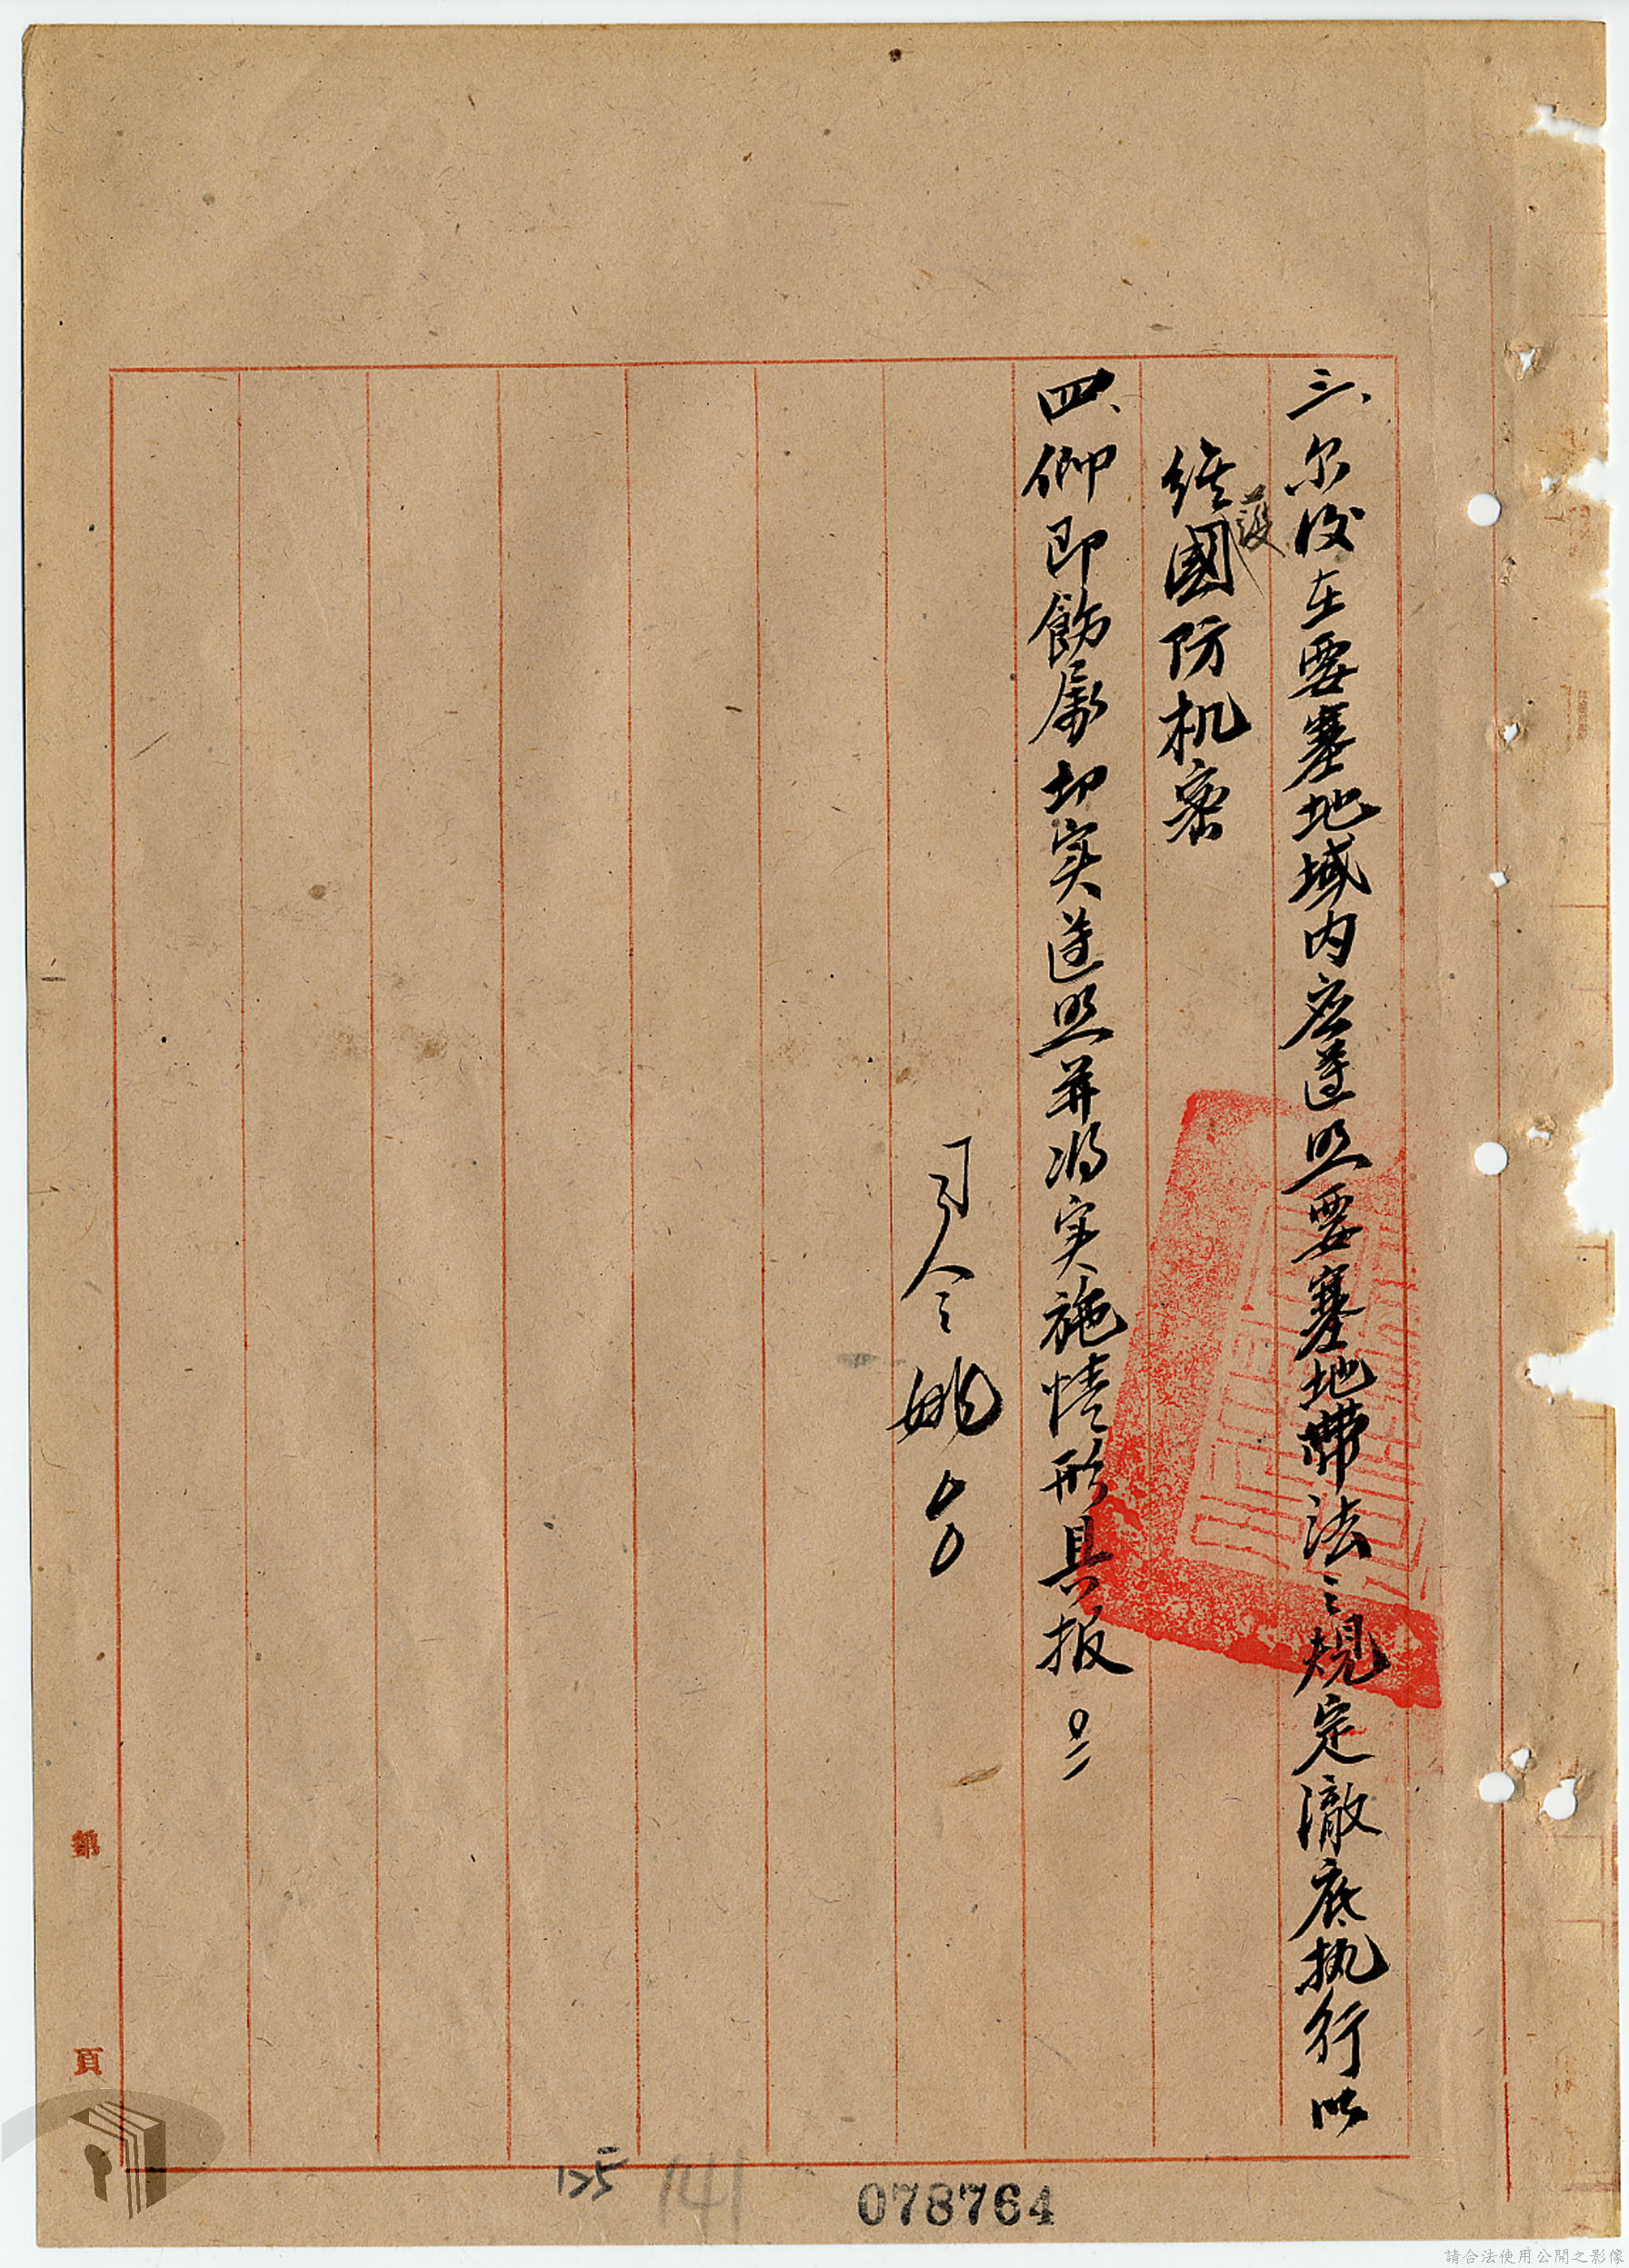 三、尔後在要塞地域内应遵照要塞地帶法之規定澈底执行以
維護國防机密
四、仰即飭属切实遵照并将实施情形具报
司令姚
第 頁
125 141
078764
請合法使用公開之影像